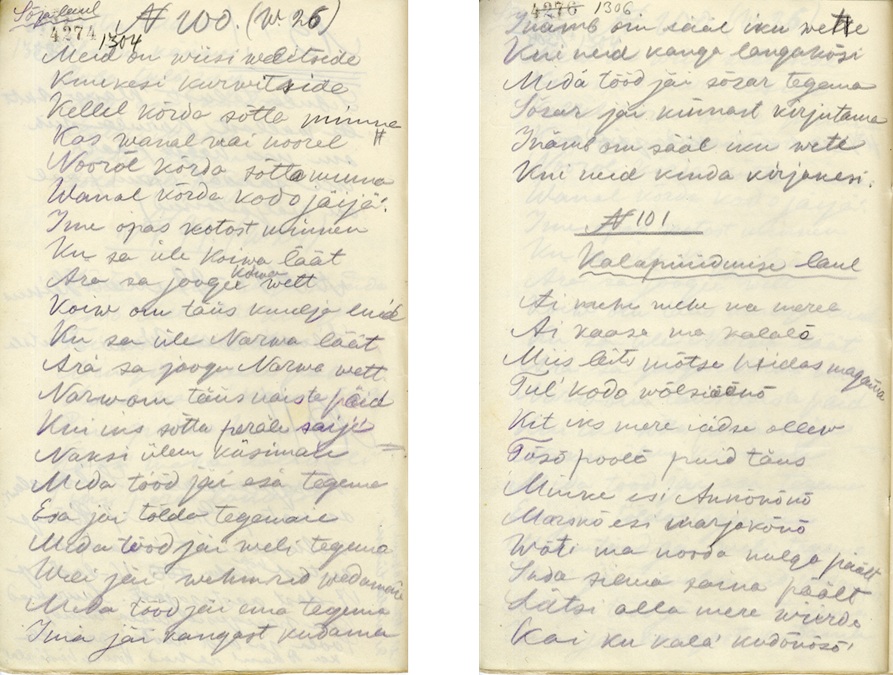 Sõja laul
4274 1304
№ 100. (W 26)
Meid on wiisi welitside
Kuukesi kurwitside
Kellel kõrda sõtta minna
Kas wanal wai noorel
Noorõl kõrda sõtta minna
Wanal kõrda kodo jäijä.
Ime opas kotost minnen
Ku sa üle Koiwa läät
Ära sa joogu Koiwa wett
Koiw om täus
Ku sa üle Narwa läät
Ära sa joogu Narwa wett
Narw om täus naiste päid
Kui ma sõtta peräle saije
Naksi ülem küsimaie
Mida tööd jäi esä tegema
Esa jäi tõlda tegemaie
Mida tööd jäi weli tegema
Weli jäi wehmrid
Mida tööd jäi ema tegema
Ima jäi kangast kudama
4276 1306
Inämb om sääl iku wette
Kui neid kanga langakõsi
Midä tööd jäi sõsar tegema
Sõsar jäi kinnast kirjutama
Inämb om sääl iku wete
Kui neid kinda kirjakesi.
№ 101
Kalapüüdmise laul
Ai mehe mehe ma merele
Ai kaasa ma kalalõ
Miis läits mõtsa magama
Tul' kodo
Kit iks mere ollew
Tõsõ poolõ puid täus
Minne esi Annõkõnõ
Marskõ esi marjakõnõ
Wõti ma nooda nulga päält
Sada siema saina päält
Lätsi alla mere wierde
Kai ku kala' kudõnõsõ'